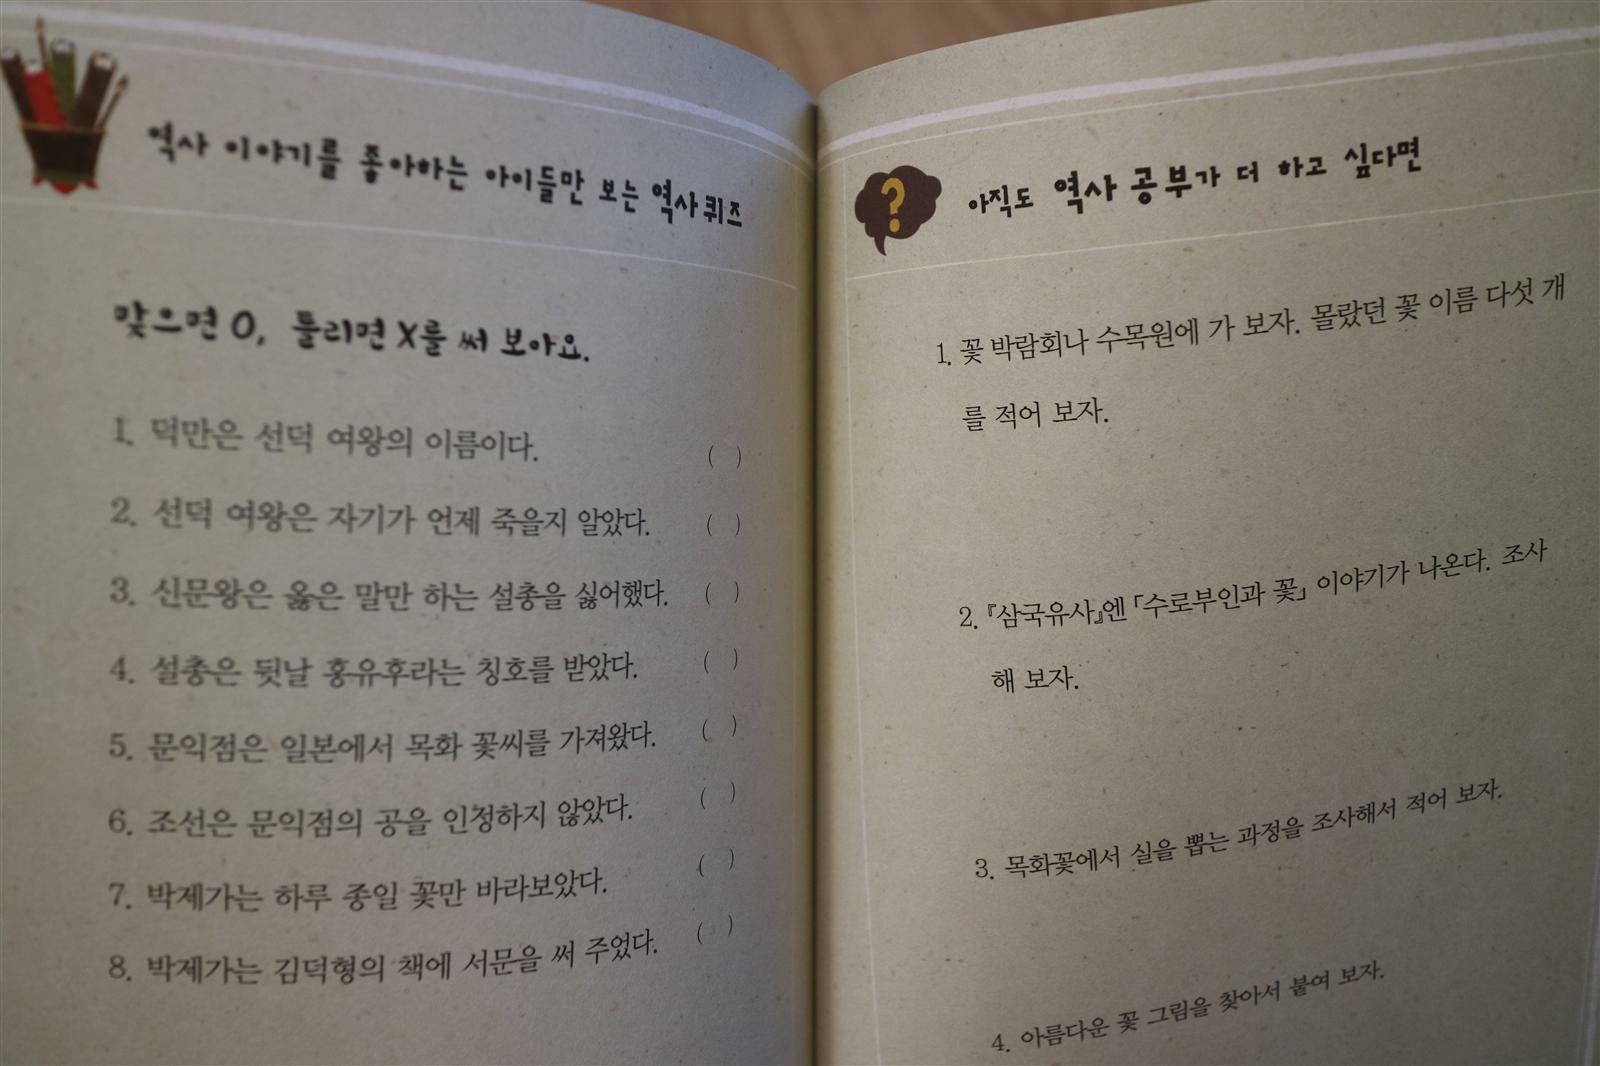 역사 이야기를 좋아하는 아이들만 보는 역사 퀴즈
맞으면 O, 틀리면 X를 써 보아요.
1. 덕만은 선덕 여왕의 이름이다. ( )
2. 선덕 여왕은 자기가 언제 죽을지 알았다. ( )
3. 신문왕은 옳은 말만 하는 설총을 싫어했다. ( )
4. 설총은 뒷날 홍유후라는 칭호를 받았다. ( )
5. 문익점은 일본에서 목화 꽃씨를 가져왔다. ( )
6. 조선은 문익점의 공을 인정하지 않았다. ( )
7. 박제가는 하루 종일 꽃만 바라보았다. ( )
8. 박제가는 김덕형의 책에 서문을 써 주었다. ( )
?
아직도 역사 공부가 더 하고 싶다면
1. 꽃 박람회나 수목원에 가 보자. 몰랐던 꽃 이름 다섯 개
를 적어 보자.
2. 『삼국유사』엔 「수로부인과 꽃」 이야기가 나온다. 조사
해 보자.
3. 목화꽃에서 실을 뽑는 과정을 조사해서 적어 보자.
4. 아름다운 꽃 그림을 찾아서 붙여 보자.